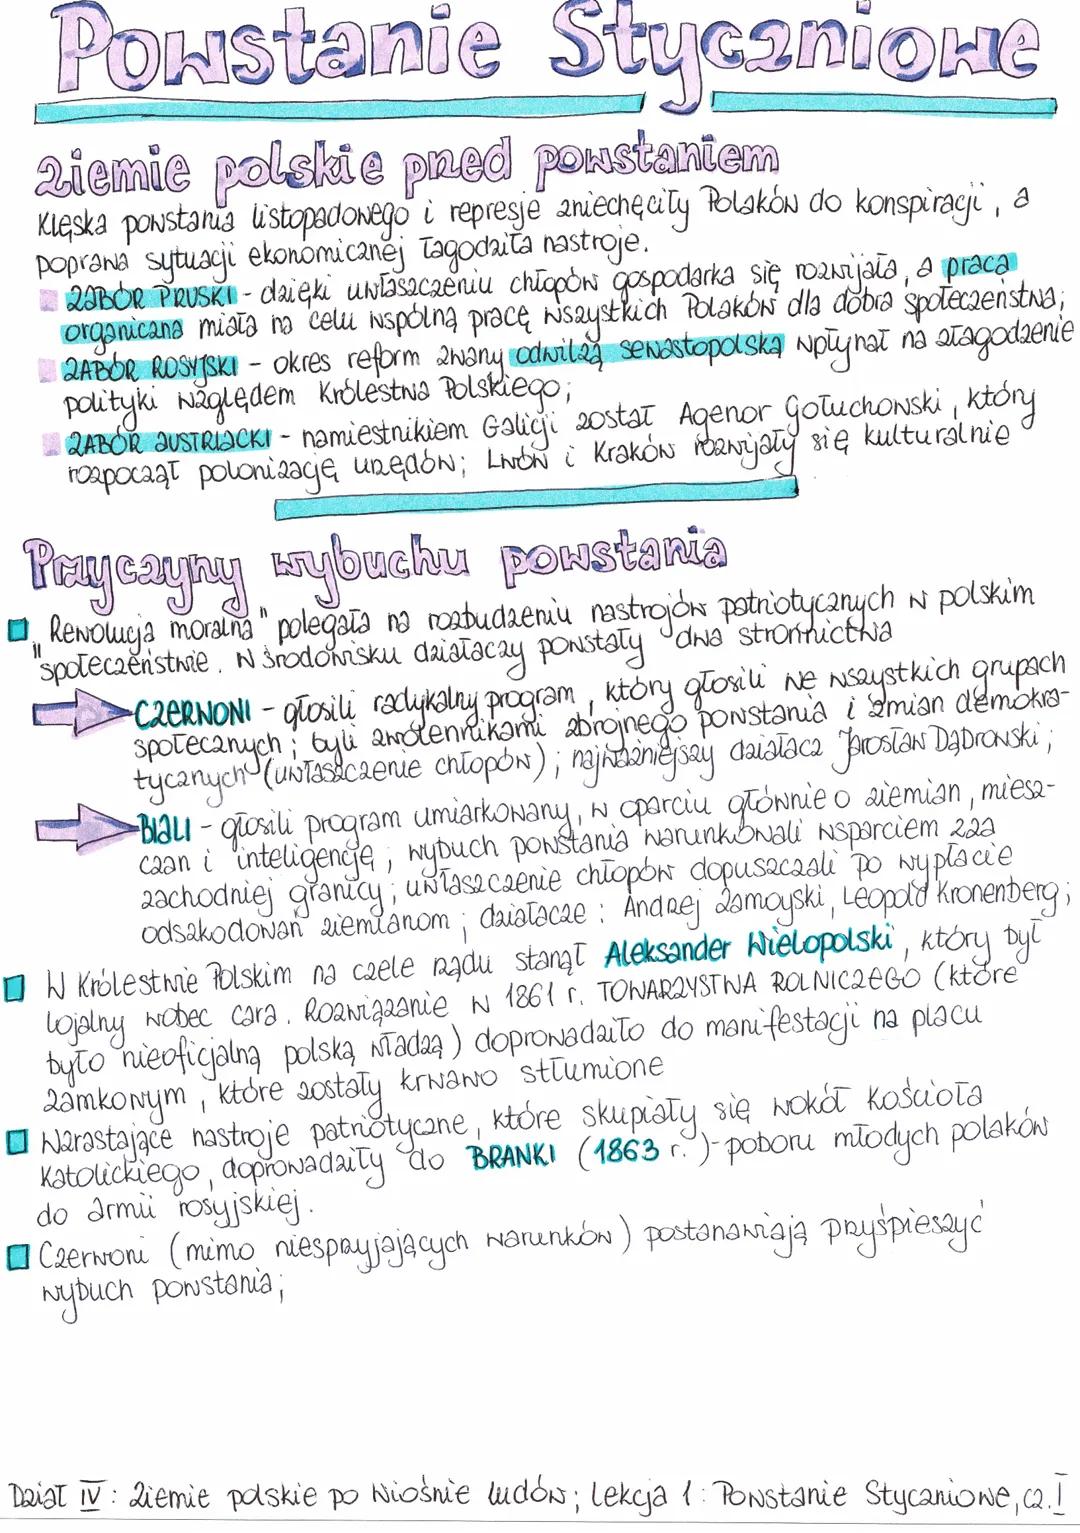 Powstanie Styczniowe
Ziemie polskie przed powstaniem
Klęska powstania listopadowego i represje zniechęciły Polaków do konspiracji, a
poprawa sytuacji ekonomicznej łagodziła nastroje.
ZABÓR PRUSKI - dzięki uwłaszczeniu chłopów gospodarka się rozwijała, a praca
organiczna miała na celu wspólną pracę wszystkich Polaków dla dobra społeczeństwa;
ZABÓR ROSYJSKI - okres reform zwany odwilżą sewastopolską wpłynął na złagodzenie
polityki względem Królestwa Polskiego;
ZABÓR AUSTRIACKI - namiestnikiem Galicji został Agenor Gołuchowski, który
rozpoczął polonizację urzędów; Lwów i Kraków rozwijały się kulturalnie
Przyczyny wybuchu powstania
"Rewolucja moralna" polegała na rozbudzeniu nastrojów patriotycznych w polskim
społeczeństwie. W środowisku działaczy powstały dwa stronnictwa
CZERWONI - głosili radykalny program, który głosili we wszystkich grupach
społecznych; byli zwolennikami zbrojnego powstania i zmian demokra-
tycznych (uwłaszczenie chłopów); najważniejszy działacz Jarosław Dąbrowski;
BIALI - głosili program umiarkowany, w oparciu głównie o ziemian, miesz-
czan i inteligencję; wybuch powstania warunkowali wsparciem zza
zachodniej granicy; uwłaszczenie chłopów dopuszczali po wypłacie
odszkodowań ziemianom; działacze: Andrzej Zamoyski, Leopold Kronenberg;
W Królestwie Polskim na czele rządu stanął Aleksander Wielopolski, który był
lojalny wobec cara. Rozwiązanie w 1861 r. TOWARZYSTWA ROLNICZEGO (które
było nieoficjalną polską władzą) doprowadziło do manifestacji na placu
zamkowym, które zostały krwawo stłumione
Narastające nastroje patriotyczne, które skupiały się wokół Kościoła
Katolickiego, doprowadziły do BRANKI (1863 r.) - poboru młodych polaków
do armii rosyjskiej.
Czerwoni (mimo niesprzyjających warunków) postanawiają przyśpieszyć
wybuch powstania;
Dział IV: Ziemie polskie po Wiośnie Ludów; Lekcja 1: Powstanie Styczniowe, cz. I